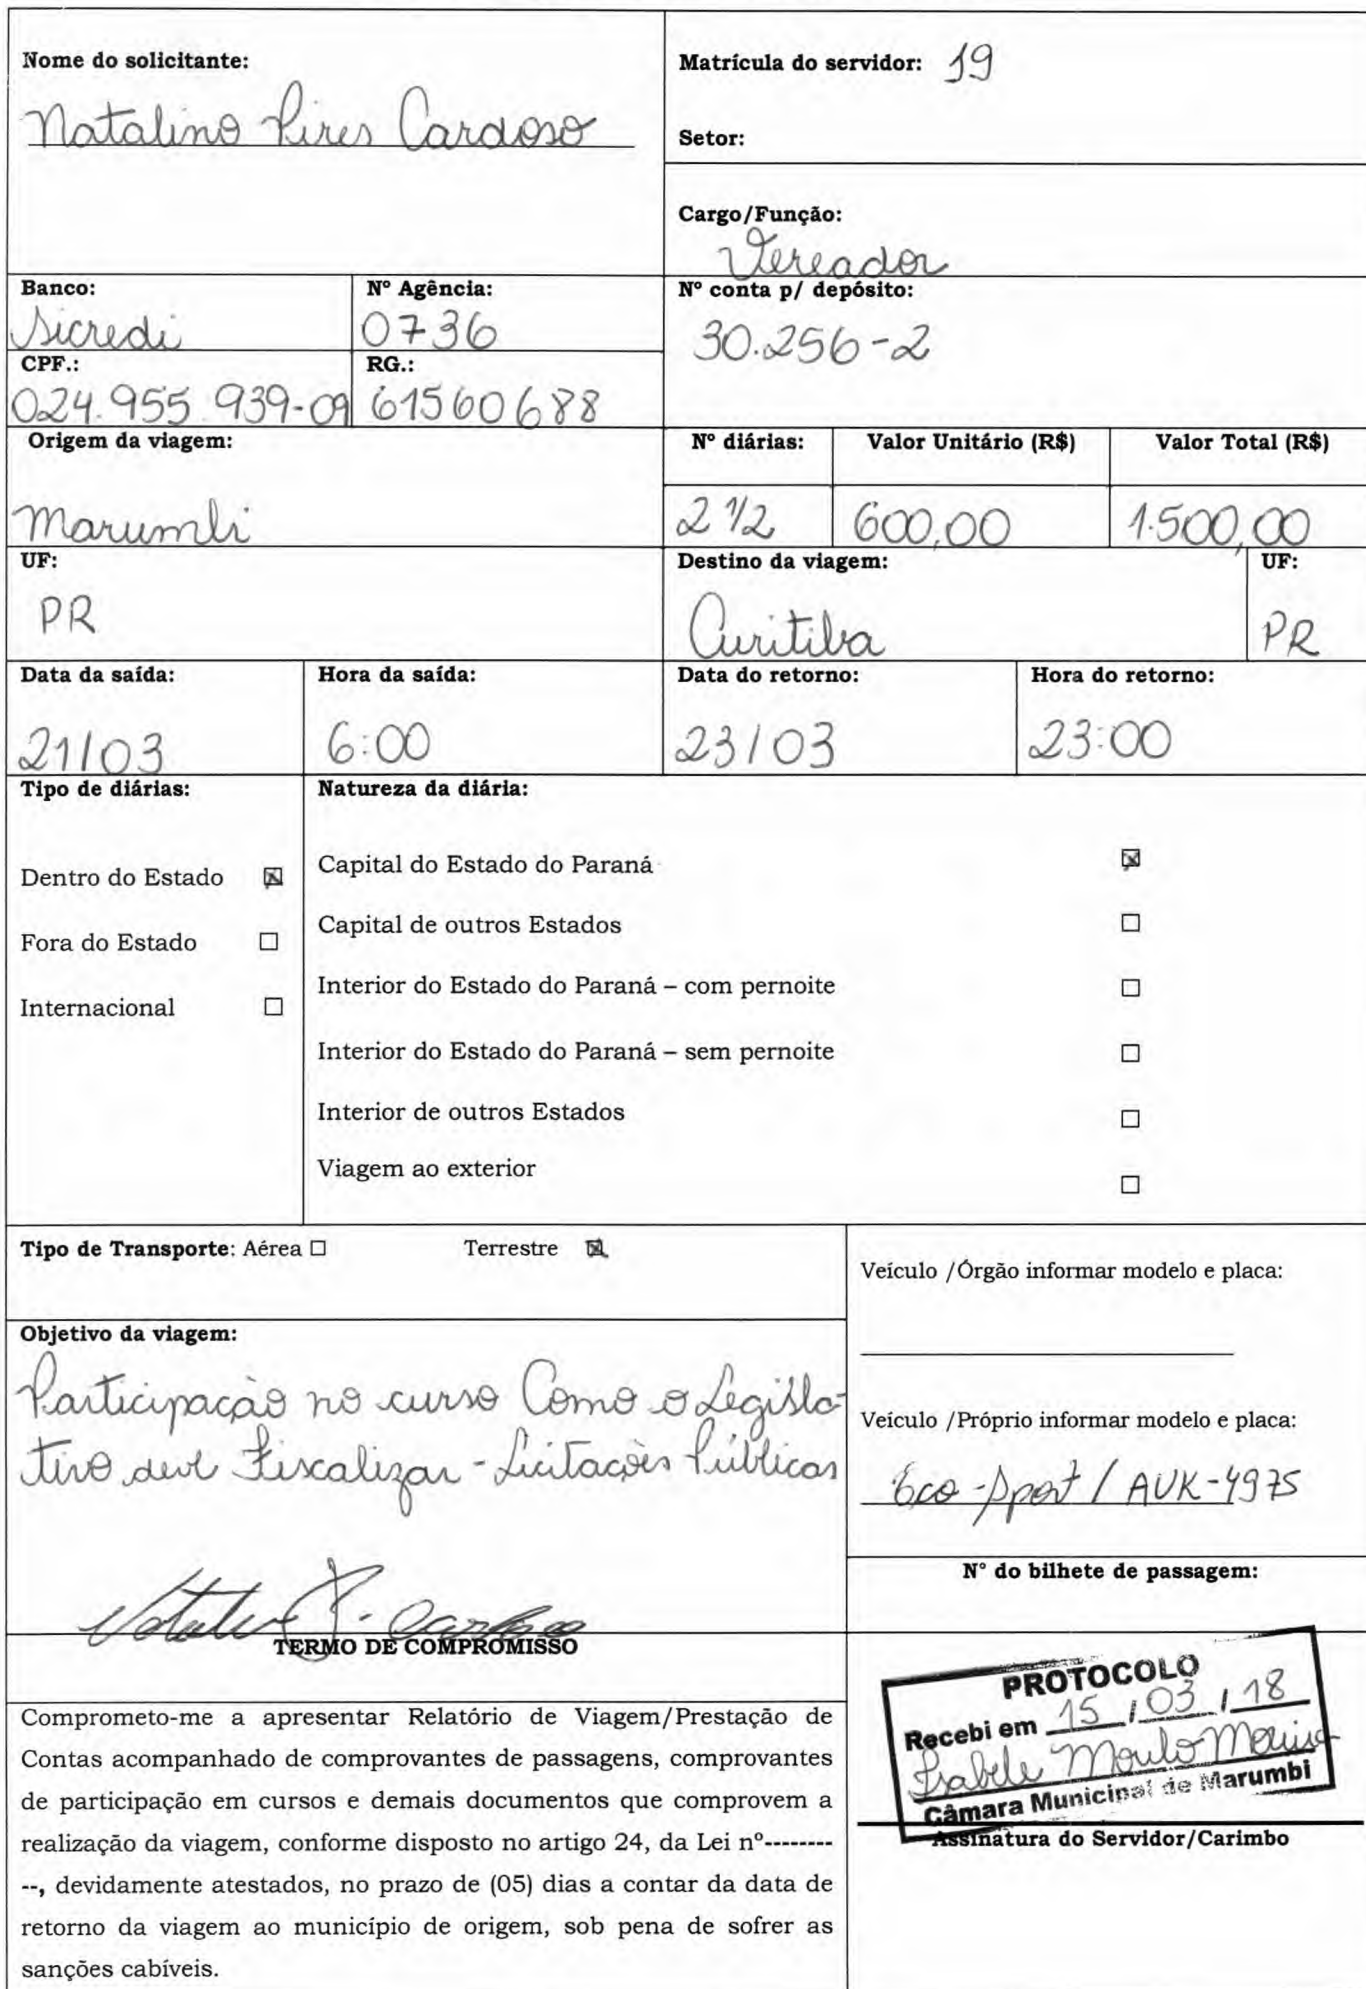 Nome do solicitante:
Natalino Pires Cardoso
Matrícula do servidor: 19
Setor:
Cargo/Função:
Vereador
Banco:
Sicredi
Nº Agência:
0736
Nº conta p/ depósito:
30.256-2
CPF.:
024.955.939-09
RG.:
61560688
Origem da viagem:
Marumbi
Nº diárias: Valor Unitário (R$) Valor Total (R$)
2 1/2 600,00 1.500,00
UF:
PR
Destino da viagem:
Curitiba
UF:
PR
Data da saída:
21/03
Hora da saída:
6:00
Data do retorno:
23/03
Hora do retorno:
23:00
Tipo de diárias:
Dentro do Estado ☒
Fora do Estado ☐
Internacional ☐
Natureza da diária:
Capital do Estado do Paraná ☒
Capital de outros Estados ☐
Interior do Estado do Paraná – com pernoite ☐
Interior do Estado do Paraná – sem pernoite ☐
Interior de outros Estados ☐
Viagem ao exterior ☐
Tipo de Transporte: Aérea ☐ Terrestre ☒
Objetivo da viagem:
Participação no curso Como o Legisla-
tivo deve Fiscalizar - Licitações Públicas
Natalino P. Cardoso
Veículo /Órgão informar modelo e placa:
Veículo /Próprio informar modelo e placa:
Eco-Sport / AUK-4975
N° do bilhete de passagem:
TERMO DE COMPROMISSO
Comprometo-me a apresentar Relatório de Viagem/Prestação de
Contas acompanhado de comprovantes de passagens, comprovantes
de participação em cursos e demais documentos que comprovem a
realização da viagem, conforme disposto no artigo 24, da Lei nº--------
--, devidamente atestados, no prazo de (05) dias a contar da data de
retorno da viagem ao município de origem, sob pena de sofrer as
sanções cabíveis.
PROTOCOLO
Recebi em 15 / 03 / 18
Isabele
Câmara Municipal de Marumbi
Assinatura do Servidor/Carimbo